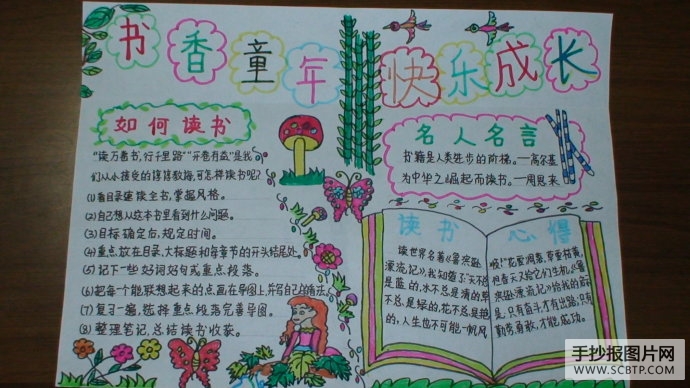 书香童年 快乐成长
如何读书
"读万卷书,行千里路""开卷有益"是我
们从小接受的谆谆教诲,可怎样读书呢?
(1)看目录速读全书,掌握风格。
(2)自己想从这本书里看到什么问题。
(3)目标确定后,规定时间。
(4)重点放在目录、大标题和每章节的开头结尾处。
(5)记下一些好词好句或重点段落。
(6)把每一个能联想起来的点画在导图上,并写自己的想法
(7)复习一遍,选择重点段落完善导图。
(8)整理笔记,总结读书收获。
名人名言
书籍是人类进步的阶梯。—高尔基
为中华之崛起而读书。—周恩来
读书
读世界名著《鲁宾逊
漂流记》,我知道了:天不总
是蓝的,水不总是清的,草
不总是绿的,花不总是艳
的,人生也不可能一帆风
心得
顺!花要凋零,草要枯黄,
但春天又给它们生机。《鲁
宾逊漂流记》给我的启示
是,只有奋斗,才有出路;只有
勤劳勇敢,才能成功。
手抄报图片网
WWW.SCBTP.COM